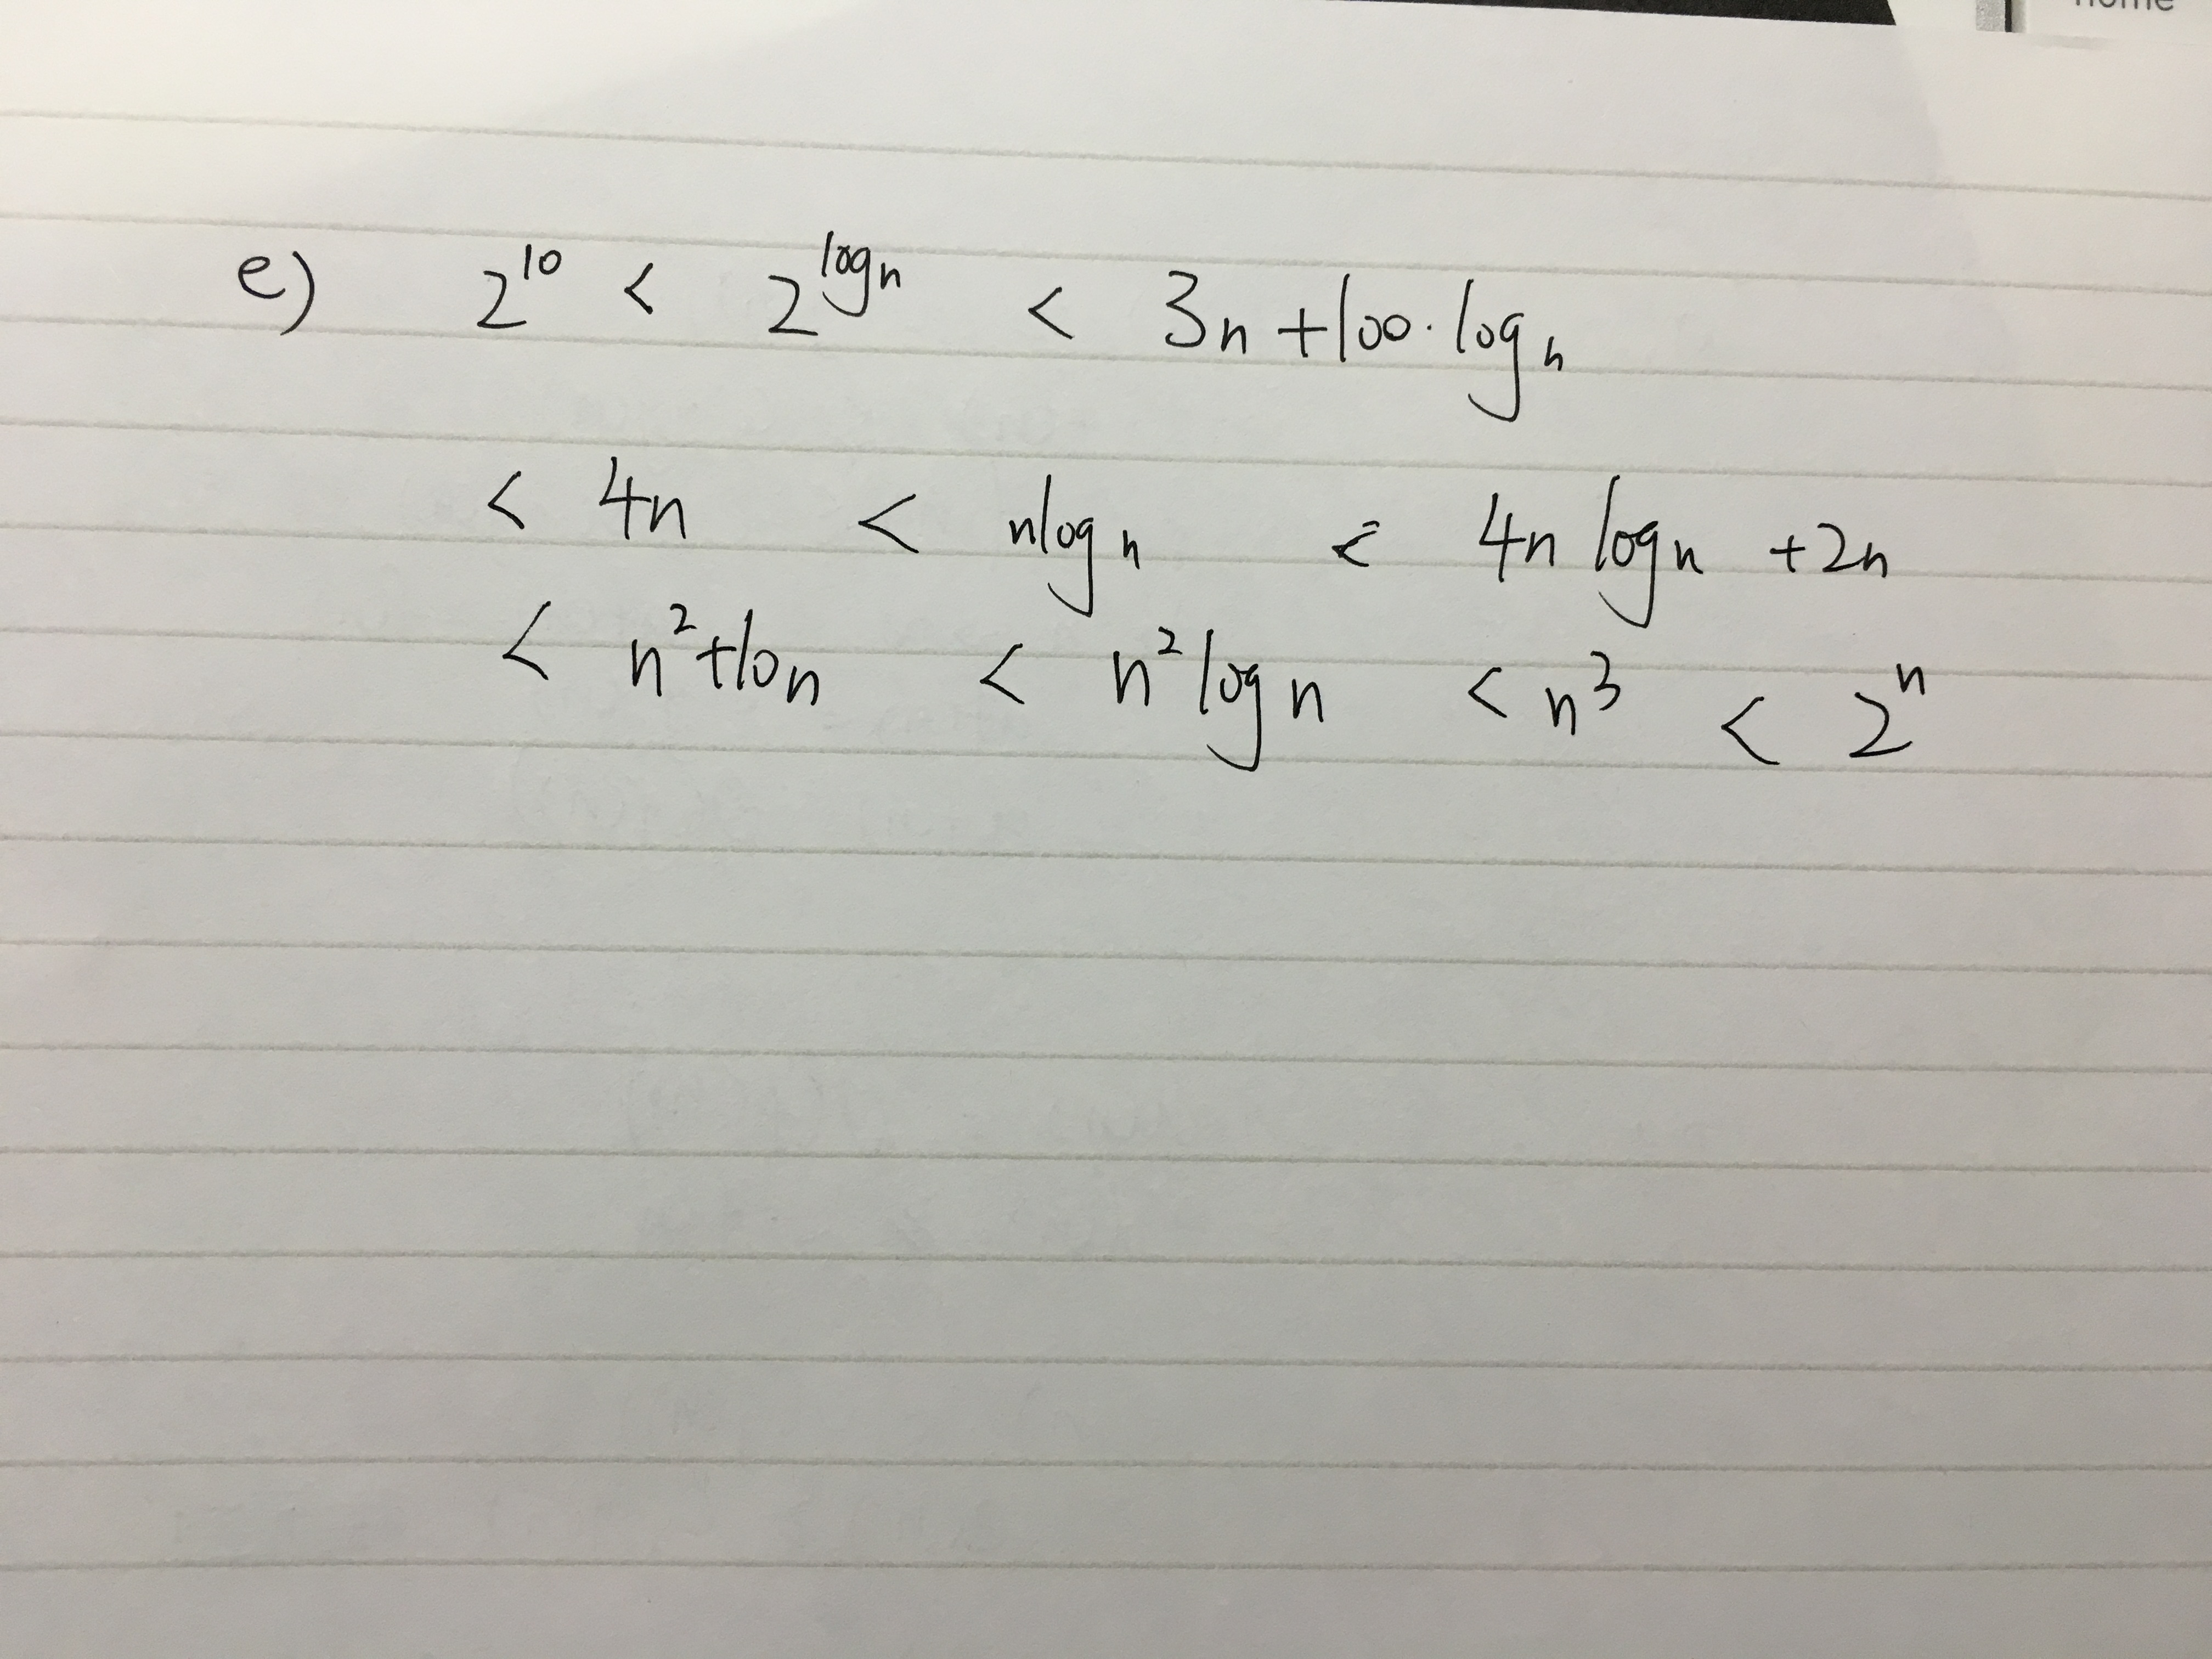 home
e) 2^10 < 2^logn < 3n + 100 · logn
< 4n < nlogn < 4n logn + 2n
< n²+10n < n² logn < n³ < 2^n